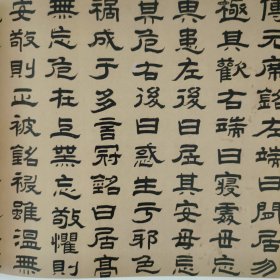 傅元席銘左端曰閒居勿
極其歡右端曰寢處毋忘
其患左後曰居其安毋忘
其危右後曰惑生于邪色
禍成于多言冠銘曰居高
無忘危在上無忘敬懼則
安敬則正被銘被雖溫無